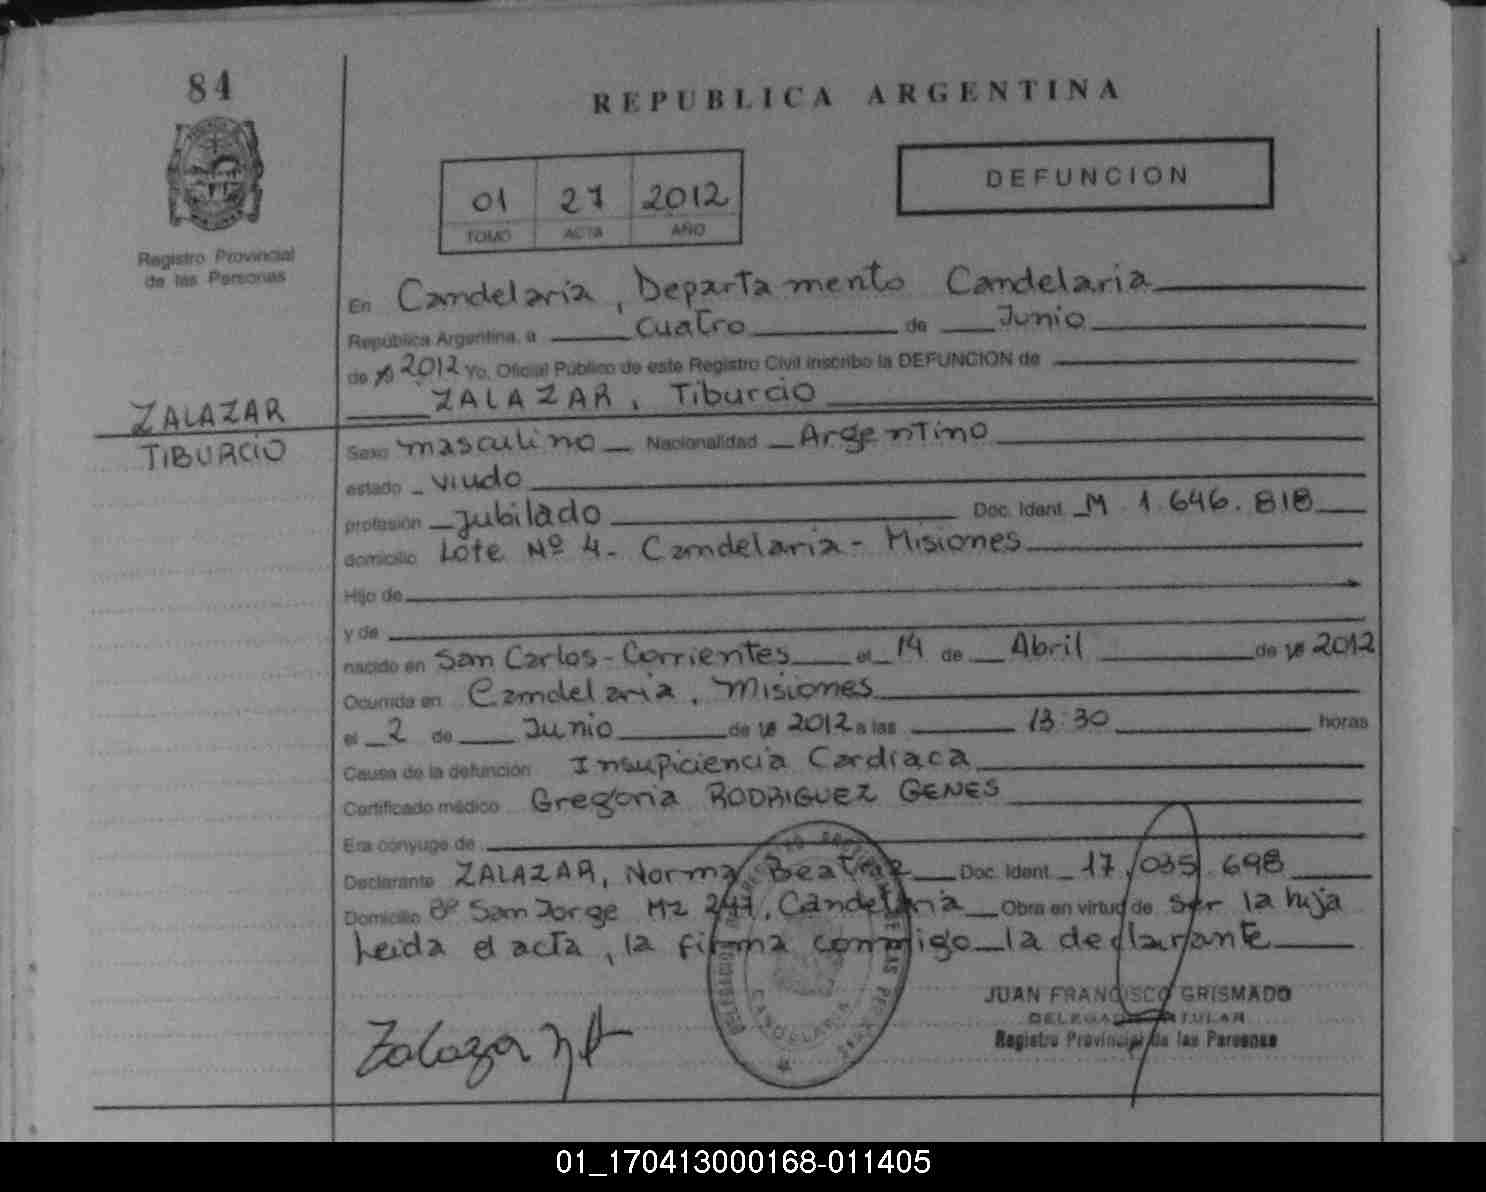 84
REPUBLICA ARGENTINA
DEFUNCION
01 27 2012
TOMO ACTA AÑO
Registro Provincial
de las Personas
En Candelaria, Departamento Candelaria
República Argentina, a cuatro de Junio
de 19 2012 Yo, Oficial Público de este Registro Civil inscribo la DEFUNCION de
ZALAZAR, Tiburcio
ZALAZAR
TIBURCIO
Sexo masculino Nacionalidad Argentino
estado viudo
profesión Jubilado Doc. Ident. M 1.646.818
domicilio Lote Nº 4- Candelaria- Misiones
Hijo de
y de
nacido en San Carlos-Corrientes el 14 de Abril de 19 2012
Ocurrida en Candelaria, Misiones
el 2 de Junio de 19 2012 a las 13:30 horas
Causa de la defunción Insuficiencia Cardiaca
Certificado médico Gregoria RODRIGUEZ GENES
Era cónyuge de
Declarante ZALAZAR, Norma Beatriz Doc. Ident. 17.035.698
Domicilio Bº San Jorge Mz 247, Candelaria Obra en virtud de ser la hija
Leida el acta, la firma conmigo la declarante
Zalazar
CANDELARIA
JUAN FRANCISCO GRISMADO
DELEGADO TITULAR
Registro Provincial de las Personas
01_170413000168-011405